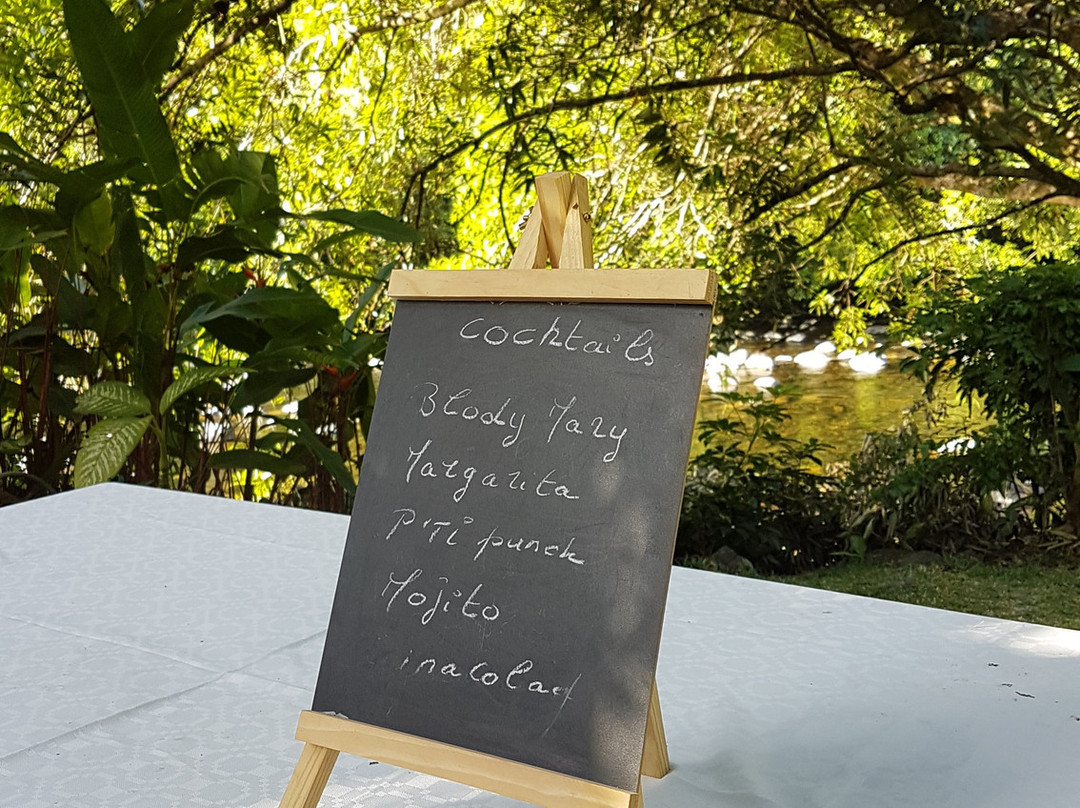 cocktails
Blody Mary
Margarita
P'Ti punch
Mojito
inacolad